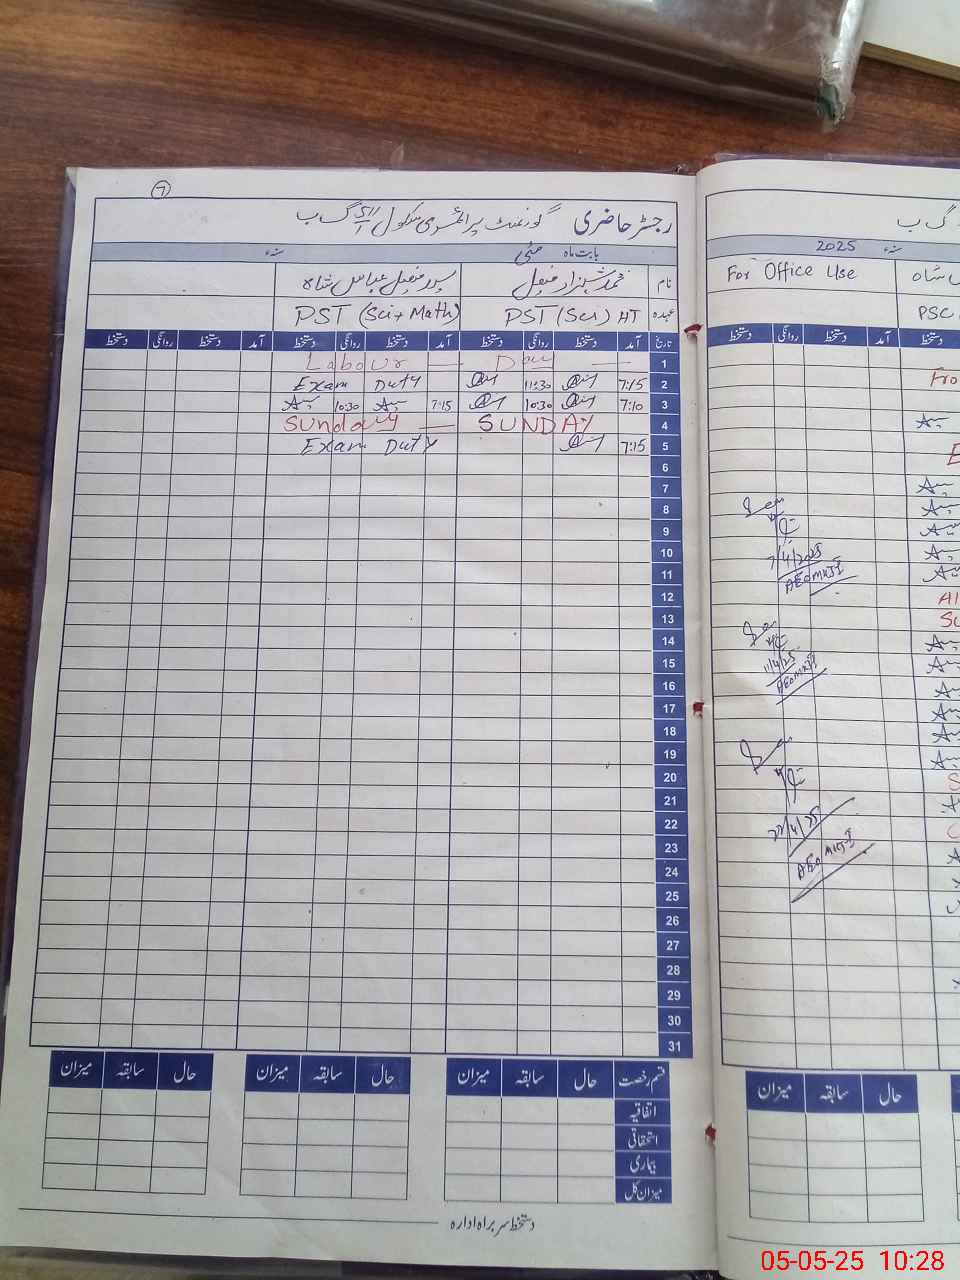 ٦
رجسٹر حاضری گورنمنٹ پرائمری سکول گ ب
بابت ماہ مئی سنہء
نام محمد شہزاد فیصل سید فیصل عباس شاہ
عہدہ PST (Sci) HT PST (Sci + Math)
تاریخ آمد دستخط روانگی دستخط آمد دستخط روانگی دستخط آمد دستخط روانگی دستخط
1 Labour — Day —
2 7:15 11:30 Exam Duty
3 7:10 10:30 7:15 10:30
4 Sunday — SUNDAY
5 7:15 Exam Duty
6
7
8
9
10
11
12
13
14
15
16
17
18
19
20
21
22
23
24
25
26
27
28
29
30
31
قسم رخصت حال سابقہ میزان حال سابقہ میزان حال سابقہ میزان
اتفاقیہ
استحقاقی
بیماری
میزان کل
دستخط سربراہ ادارہ
گ ب
سنہء 2025
For Office Use
شاہ
PSC
دستخط آمد دستخط روانگی دستخط
Fro
7/4/2025
AEO
11/4/25
AEO
22/4/25
AEO
حال سابقہ میزان
05-05-25 10:28